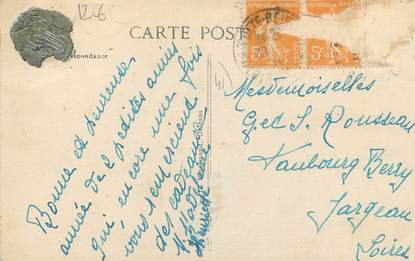 12€
CARTE POST
pondance
5c
5c
41
Bonne et heureuse
année de 2 petites amies
qui encore une fois
vous remercient
des cadeaux
Mesdemoiselles
G et S. Rousseau
Faubourg Berry
Jargeau
Loiret